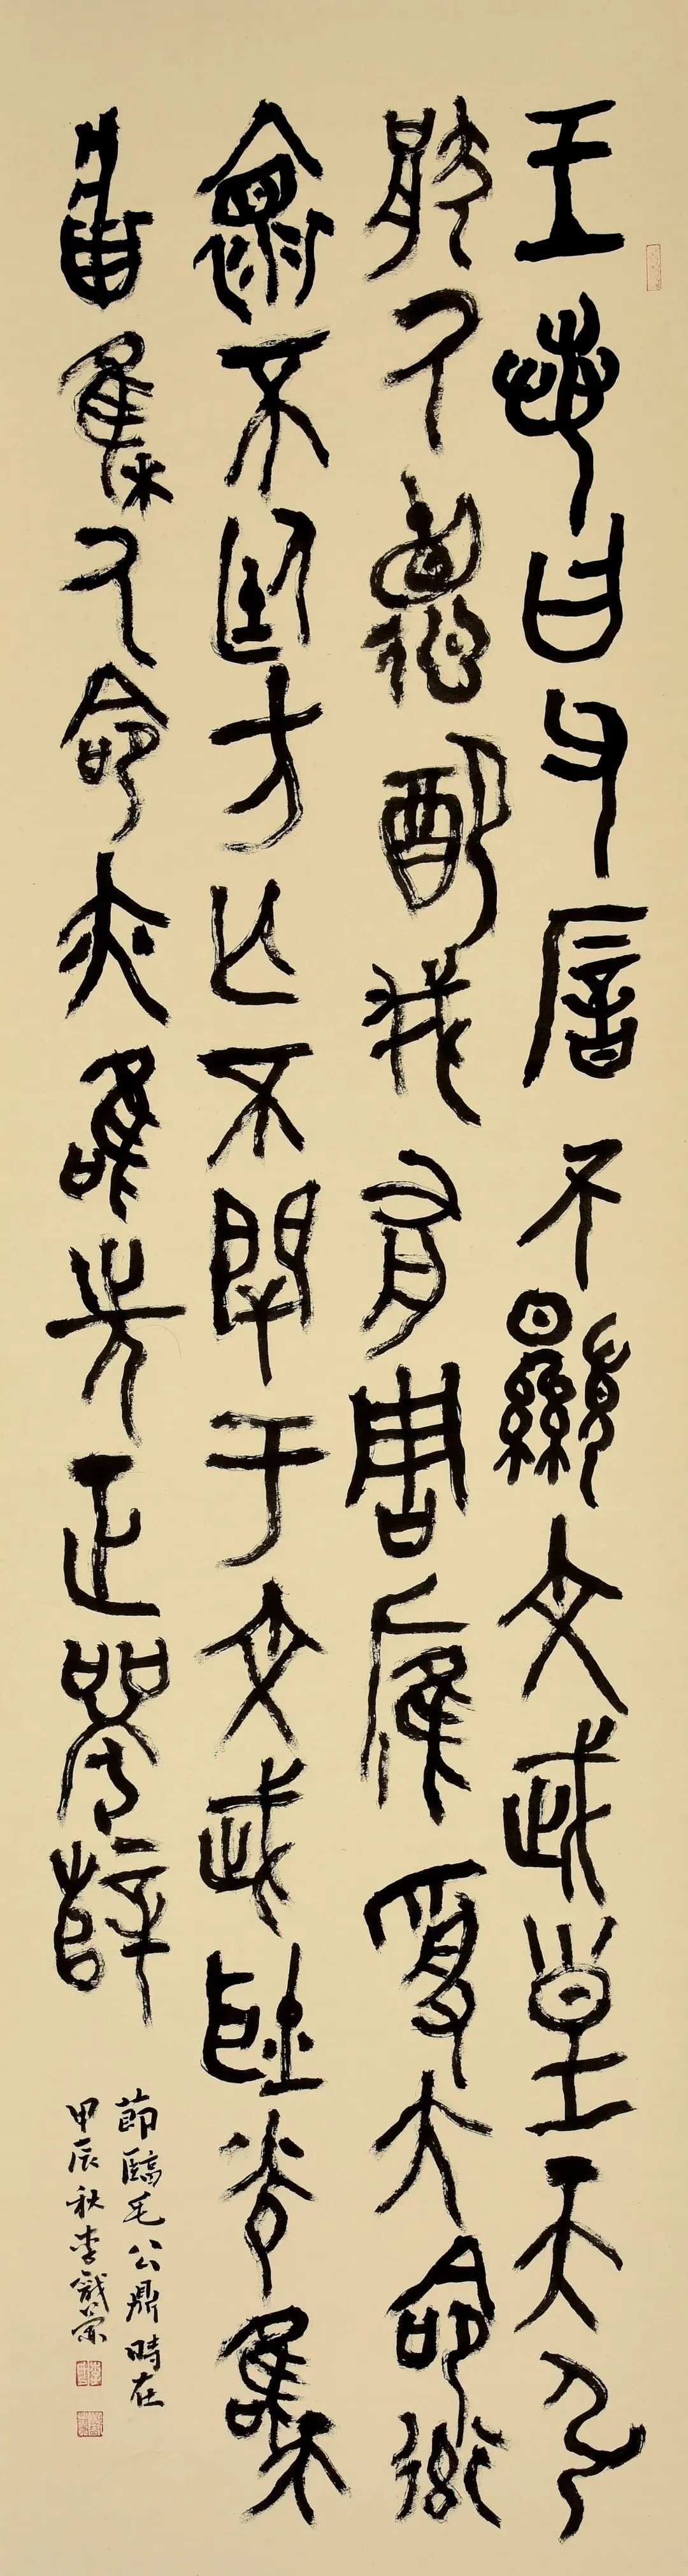 王若曰父㕌不顯文武皇天引
猒氒德配我有周膺受大命率
褱不廷方亡不閈于文武耿光唯天
將集氒命亦唯先正襄辥
節臨毛公鼎時在
甲辰秋李